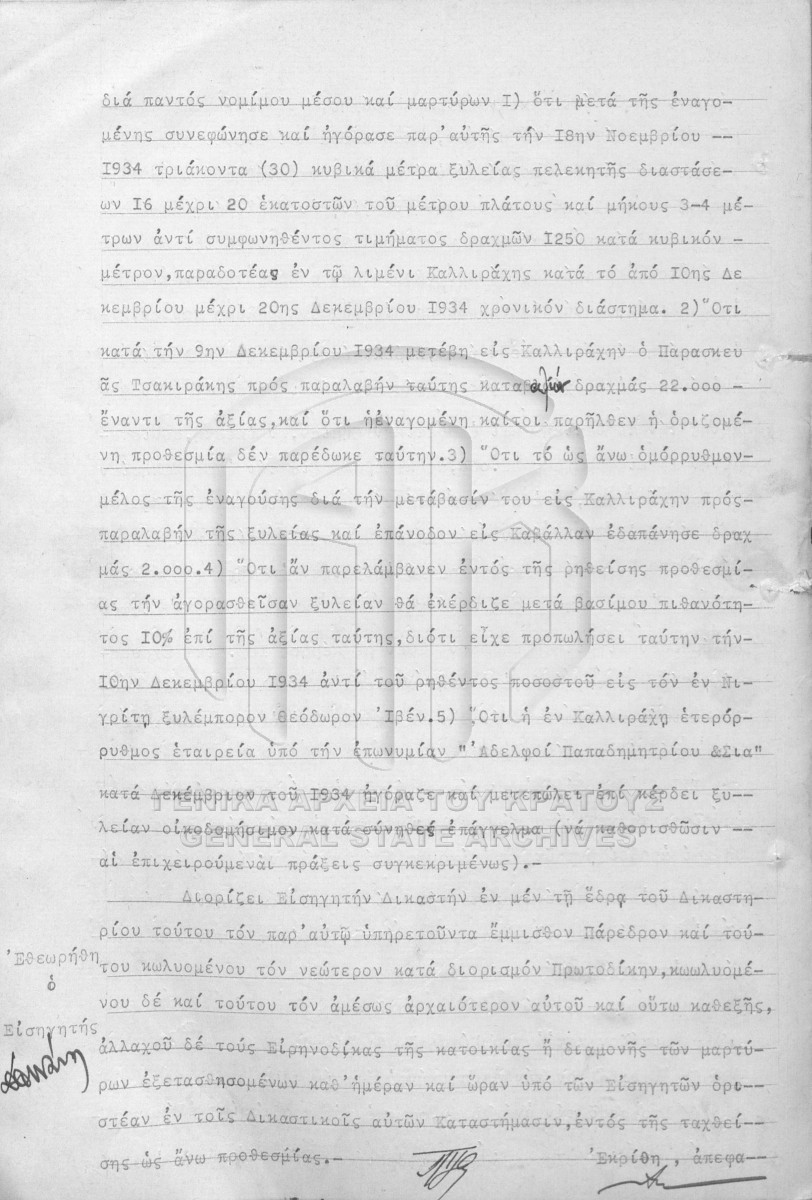 διά παντός νομίμου μέσου καί μαρτύρων Ι) ὅτι μετά τῆς ἐναγο-
μένης συνεφώνησε καί ἠγόρασε παρ'αὐτῆς τήν Ι8ην Νοεμβρίου --
Ι934 τριάκοντα (30) κυβικά μέτρα ξυλείας πελεκητῆς διαστάσε-
ων Ι6 μέχρι 20 ἑκατοστῶν τοῦ μέτρου πλάτους καί μήκους 3-4 μέ-
τρων ἀντί συμφωνηθέντος τιμήματος δραχμῶν Ι250 κατά κυβικόν -
μέτρον,παραδοτέας ἐν τῷ λιμένι Καλλιράχης κατά τό ἀπό Ι0ης Δε
κεμβρίου μέχρι 20ης Δεκεμβρίου Ι934 χρονικόν διάστημα. 2)Ὅτι
κατά τήν 9ην Δεκεμβρίου Ι934 μετέβη εἰς Καλλιράχην ὁ Παρασκευ
ᾶς Τσακιράκης πρός παραλαβήν ταύτης καταβαλών δραχμάς 22.000 -
ἔναντι τῆς ἀξίας,καί ὅτι ἡἐναγομένη καίτοι παρῆλθεν ἡ ὁριζομέ-
νη προθεσμία δέν παρέδωκε ταύτην.3) Ὅτι τό ὡς ἄνω ὁμόρρυθμον-
μέλος τῆς ἐναγούσης διά τήν μετάβασίν του εἰς Καλλιράχην πρός-
παραλαβήν τῆς ξυλείας καί ἐπάνοδον εἰς Καβάλλαν ἐδαπάνησε δραχ
μάς 2.000.4) Ὅτι ἄν παρελάμβανεν ἐντός τῆς ρηθείσης προθεσμί-
ας τήν ἀγορασθεῖσαν ξυλείαν θά ἐκέρδιζε μετά βασίμου πιθανότη-
τος Ι0% ἐπί τῆς ἀξίας ταύτης,διότι εἶχε προπωλήσει ταύτην τήν-
Ι0ην Δεκεμβρίου Ι934 ἀντί τοῦ ρηθέντος ποσοστοῦ εἰς τόν ἐν Νι-
γρίτῃ ξυλέμπορον Θεόδωρον Ἰβέν.5) Ὅτι ἡ ἐν Καλλιράχῃ ἑτερόρ-
ρυθμος ἑταιρεία ὑπό τήν ἐπωνυμίαν "Ἀδελφοί Παπαδημητρίου &Σια"
κατά Δεκέμβριον τοῦ Ι934 ἠγόραζε καί μετεπώλει ἐπί κέρδει ξυ--
ΓΕΝΙΚΑ ΑΡΧΕΙΑ ΤΟΥ ΚΡΑΤΟΥΣ
λείαν οἰκοδομήσιμον κατά σύνηθες ἐπάγγελμα (νά καθορισθῶσιν --
GENERAL STATE ARCHIVES
αἱ ἐπιχειρούμεναι πράξεις συγκεκριμένως).-
Διορίζει Εἰσηγητήν Δικαστήν ἐν μέν τῇ ἕδρᾳ τοῦ Δικαστη-
ρίου τούτου τόν παρ'αὐτῷ ὑπηρετοῦντα ἔμμισθον Πάρεδρον καί τού-
του κωλυομένου τόν νεώτερον κατά διορισμόν Πρωτοδίκην,κωωλυομέ-
νου δέ καί τούτου τόν ἀμέσως ἀρχαιότερον αὐτοῦ καί οὕτω καθεξῆς,
ἀλλαχοῦ δέ τούς Εἰρηνοδίκας τῆς κατοικίας ἤ διαμονῆς τῶν μαρτύ-
ρων ἐξετασθησομένων καθ'ἡμέραν καί ὥραν ὑπό τῶν Εἰσηγητῶν ὁρι--
στέαν ἐν τοῖς Δικαστικοῖς αὐτῶν Καταστήμασιν,ἐντός τῆς ταχθεί--
σης ὡς ἄνω προθεσμίας.- Ἐκρίθη, ἀπεφα--
Ἐθεωρήθη
ὁ
Εἰσηγητής